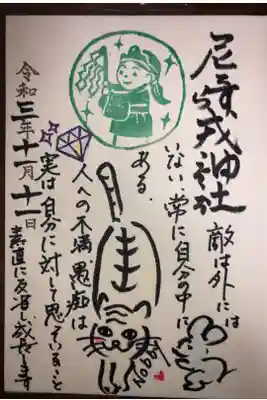 尼寺戎神社
敵は外には
いない、常に自分の中に
ある。
人への不満、愚痴は
実は自分に対して思っていること
素直に反省し成長します
令和三年十一月十一日